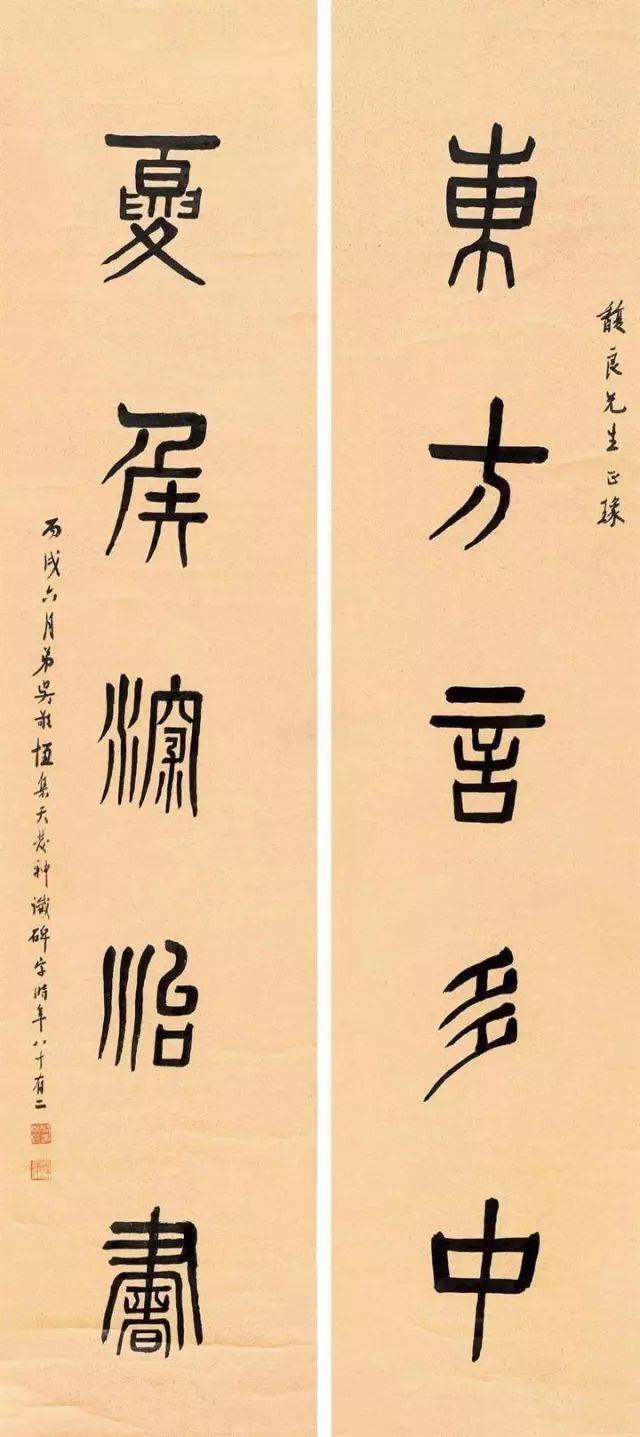 東方言多中
馥良先生正瑑
夏侯深治書
丙戌六月弟吳敬恆集天發神讖碑字時年八十有二